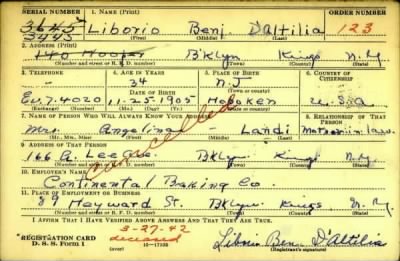 SERIAL NUMBER 1. NAME (Print) ORDER NUMBER
3645
3443 Liborio Benj. D'Altilia 123
(First) (Middle) (Last)
2. ADDRESS (Print)
140 Hooper B'klyn Kings N.Y.
(Number and street or R. F. D. number) (Town) (County) (State)
3. TELEPHONE 4. AGE IN YEARS 5. PLACE OF BIRTH 6. COUNTRY OF CITIZENSHIP
34 N.J
Ev. 7-4020 11-25-1905 Hoboken U.S.A
(Exchange) (Number) (Mo.) (Day) (Yr.) (State or country)
7. NAME OF PERSON WHO WILL ALWAYS KNOW YOUR ADDRESS 8. RELATIONSHIP OF THAT PERSON
Mrs. Angelina Landi Mother in law
(Mr., Mrs., Miss) (First) (Middle) (Last)
9. ADDRESS OF THAT PERSON
166 A. Lee Ave. Bklyn. Kings N.Y.
(Number and street or R. F. D. number) (Town) (County) (State)
Cancelled
10. EMPLOYER'S NAME
Continental Baking Co.
11. PLACE OF EMPLOYMENT OR BUSINESS
89 Heyward St. Bklyn. Kings N.Y.
(Number and street or R. F. D. number) (Town) (County) (State)
I AFFIRM THAT I HAVE VERIFIED ABOVE ANSWERS AND THAT THEY ARE TRUE.
3-27-42
deceased
REGISTRATION CARD
D. S. S. Form 1 16-17105 Liborio Benj. D'Altilia
(Registrant's signature)